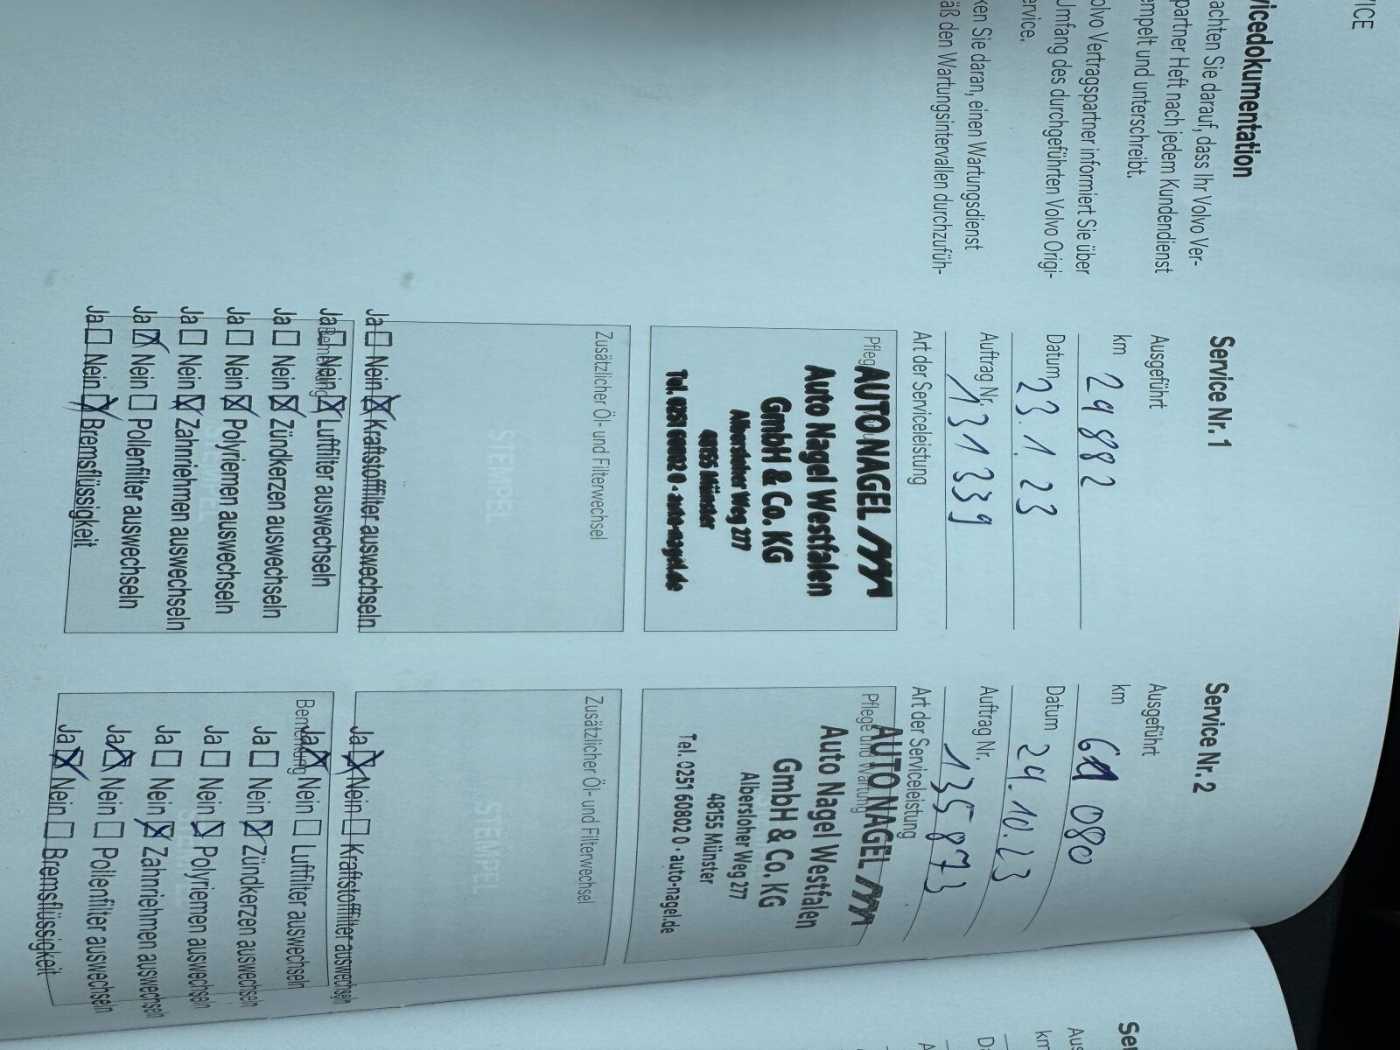 VICE
vicedokumentation
achten Sie darauf, dass Ihr Volvo Ver-
partner Heft nach jedem Kundendienst
empelt und unterschreibt.
olvo Vertragspartner informiert Sie über
Umfang des durchgeführten Volvo Origi-
ervice.
ken Sie daran, einen Wartungsdienst
äß den Wartungsintervallen durchzufüh-
Service Nr. 1
Ausgeführt
km 29 882
Datum 23.1.23
Auftrag Nr. 131339
Art der Serviceleistung
AUTO NAGEL
Auto Nagel Westfalen
GmbH & Co. KG
Albersloher Weg 277
48155 Münster
Tel. 0251 60802 0 · auto-nagel.de
Zusätzlicher Öl- und Filterwechsel
STEMPEL
Bemerkung
Ja ☐ Nein ☒ Kraftstofffilter auswechseln
Ja ☐ Nein ☒ Luftfilter auswechseln
Ja ☐ Nein ☒ Zündkerzen auswechseln
Ja ☐ Nein ☒ Polyriemen auswechseln
Ja ☐ Nein ☒ Zahnriehmen auswechseln
Ja ☒ Nein ☐ Pollenfilter auswechseln
Ja ☐ Nein ☒ Bremsflüssigkeit
Service Nr. 2
Ausgeführt
km 61 080
Datum 24.10.23
Auftrag Nr. 135873
Art der Serviceleistung
Pflege und Wartung
AUTO NAGEL
Auto Nagel Westfalen
GmbH & Co. KG
Albersloher Weg 277
48155 Münster
Tel. 0251 60802 0 · auto-nagel.de
Zusätzlicher Öl- und Filterwechsel
STEMPEL
Bemerkung
Ja ☒ Nein ☐ Kraftstofffilter auswechseln
Ja ☒ Nein ☐ Luftfilter auswechseln
Ja ☐ Nein ☒ Zündkerzen auswechseln
Ja ☐ Nein ☒ Polyriemen auswechseln
Ja ☐ Nein ☒ Zahnriehmen auswechseln
Ja ☒ Nein ☐ Pollenfilter auswechseln
Ja ☒ Nein ☐ Bremsflüssigkeit
Se
Aus
km